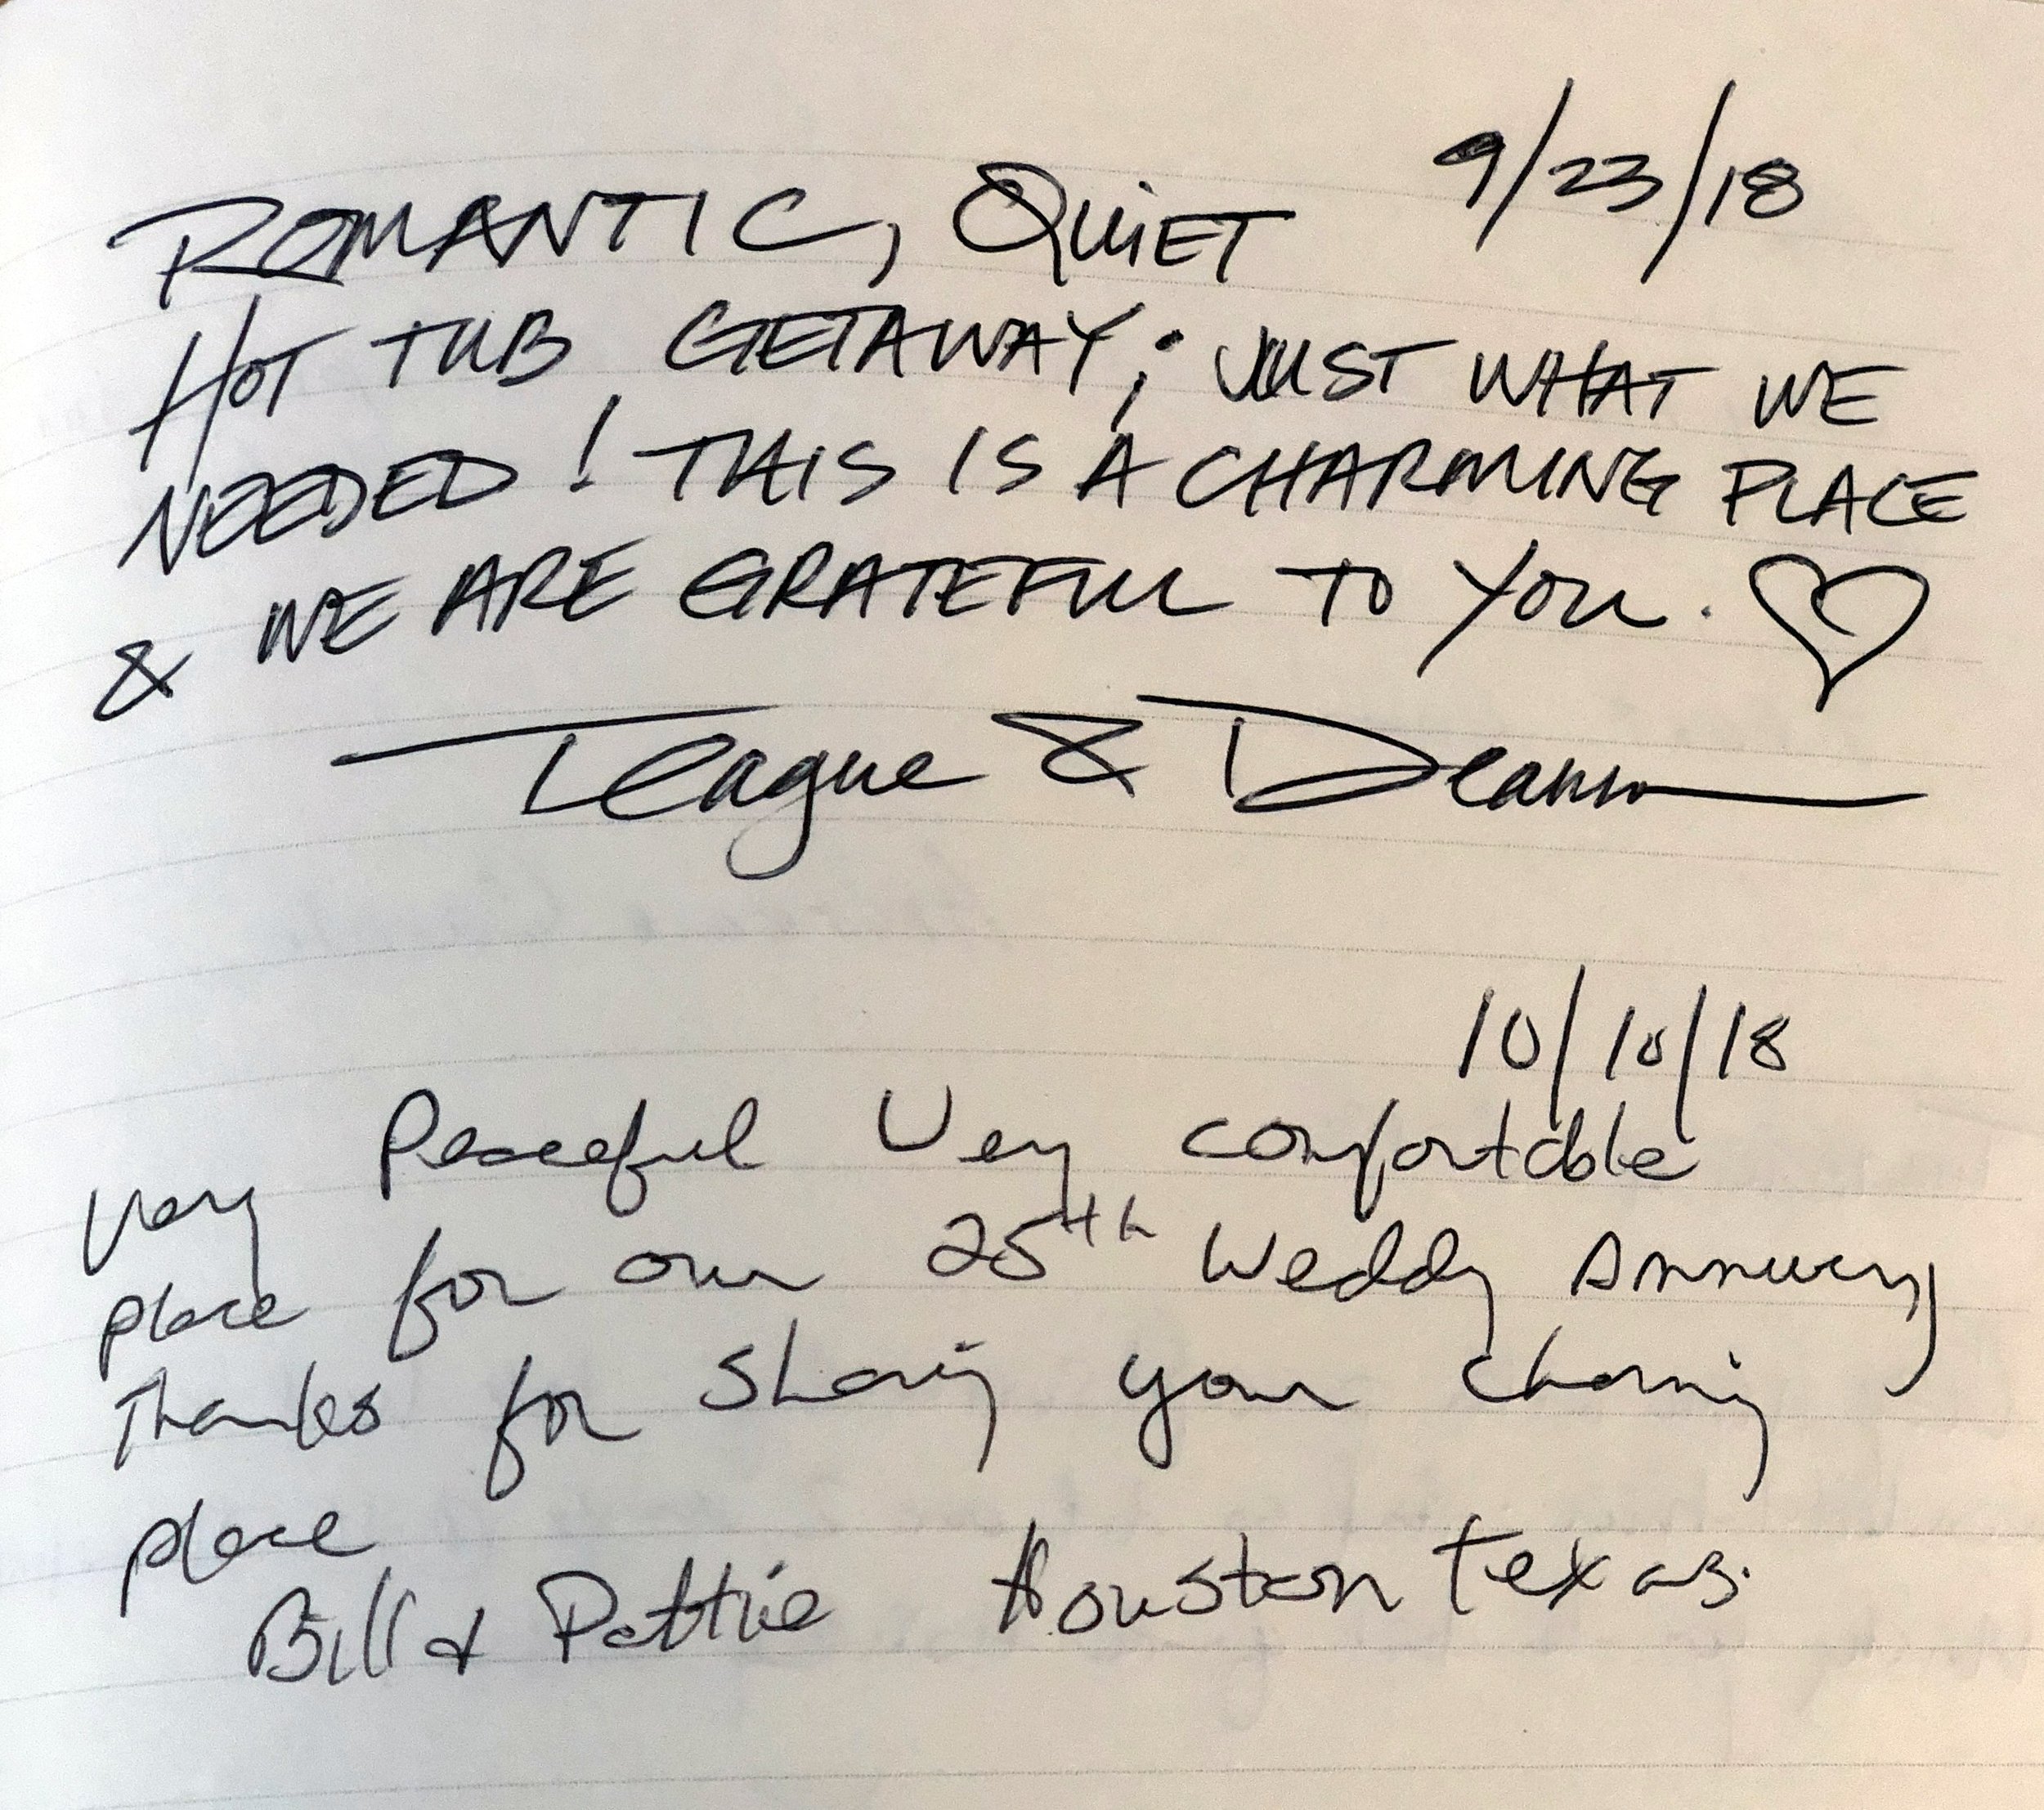 9/23/18
ROMANTIC, QUIET
HOT TUB GETAWAY; JUST WHAT WE
NEEDED! THIS IS A CHARMING PLACE
& WE ARE GRATEFUL TO YOU. ♡
Teague &
10/10/18
Very Peaceful Very comfortable
place for our 25th Wedding Anniversary
Thanks for sharing your charming
place
Bill & Pattie Houston Texas.